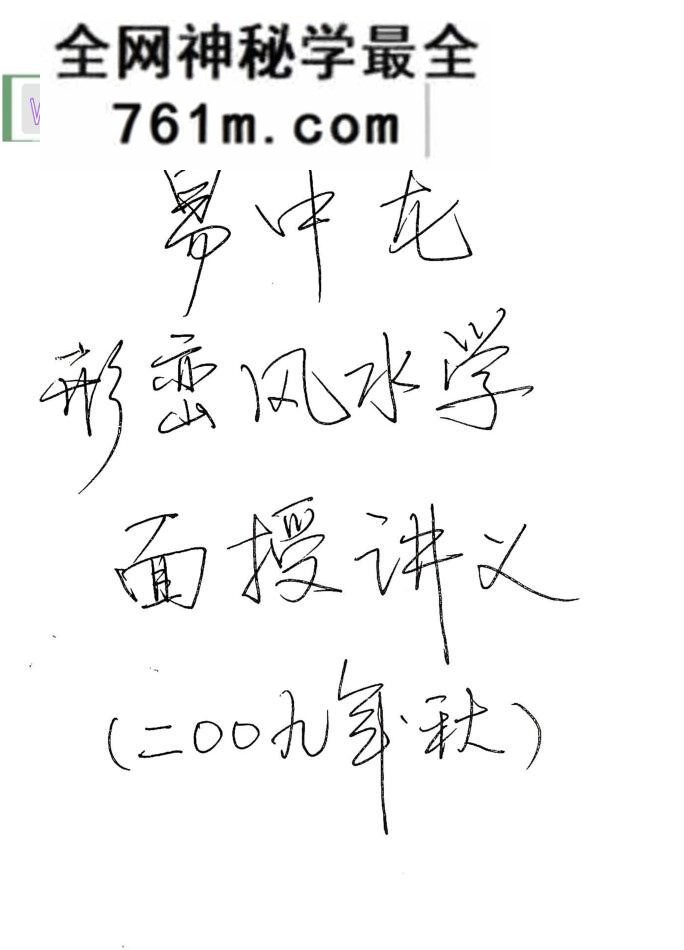 全网神秘学最全
761m.com
易中龙
形峦风水学
面授讲义
(二〇〇九年·秋)